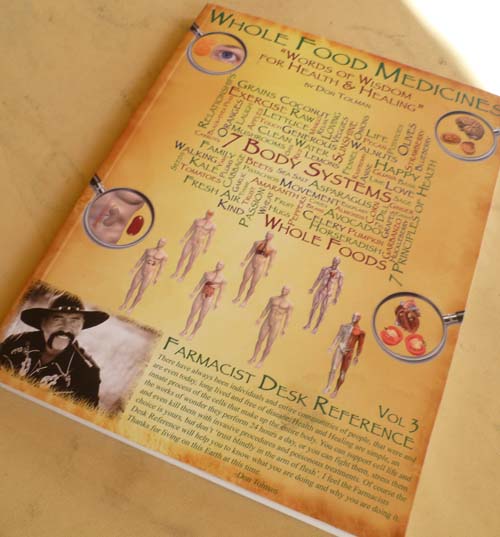 WHOLE FOOD MEDICINES
"WORDS OF WISDOM
FOR HEALTH & HEALING"
BY DON TOLMAN
RELATIONSHIPS
GRAINS COCONUT
EXERCISE RAW
LETTUCE
LOVING
ORANGES
LAUGH
GENEROUS
SUNSHINE
ONION
LIFE
PECAN
WALNUTS
OLIVES
STRAWBERRY
BLUEBERRY
MUSHROOMS
CLEAN WATER
LEMONS
HAPPY
7 BODY SYSTEMS
LOVE
SAGE
FAMILY
WALKING
KALE
TOMATOES
BEETS SEA SALT ASPARAGUS
PISTACHIOS
MOVEMENT
AMARANTH
CORN
GARLIC
FRESH AIR
KIND
PASSION
WHEAT
FRUIT
HUGS
CELERY
AVOCADO
PUMPKIN
HORSERADISH
WHOLE FOODS
7 PRINCIPLES OF HEALTH
FARMACIST DESK REFERENCE
VOL 3
There have always been individuals and entire communities of people, that were and
are even today, long lived and free of disease. Health and Healing are simple, an
innate process of the cells that make up the entire body. You can support cell life and
the works of wonder they perform 24 hours a day, or you can fight them, stress them
and even kill them with invasive procedures and poisonous treatments. Of course the
choice is yours, but don't 'trust blindly in the arm of flesh'. I feel the Farmacists
Desk Reference will help you to know what you are doing and why you are doing it.
Thanks for living on this Earth at this time.
-Don Tolman